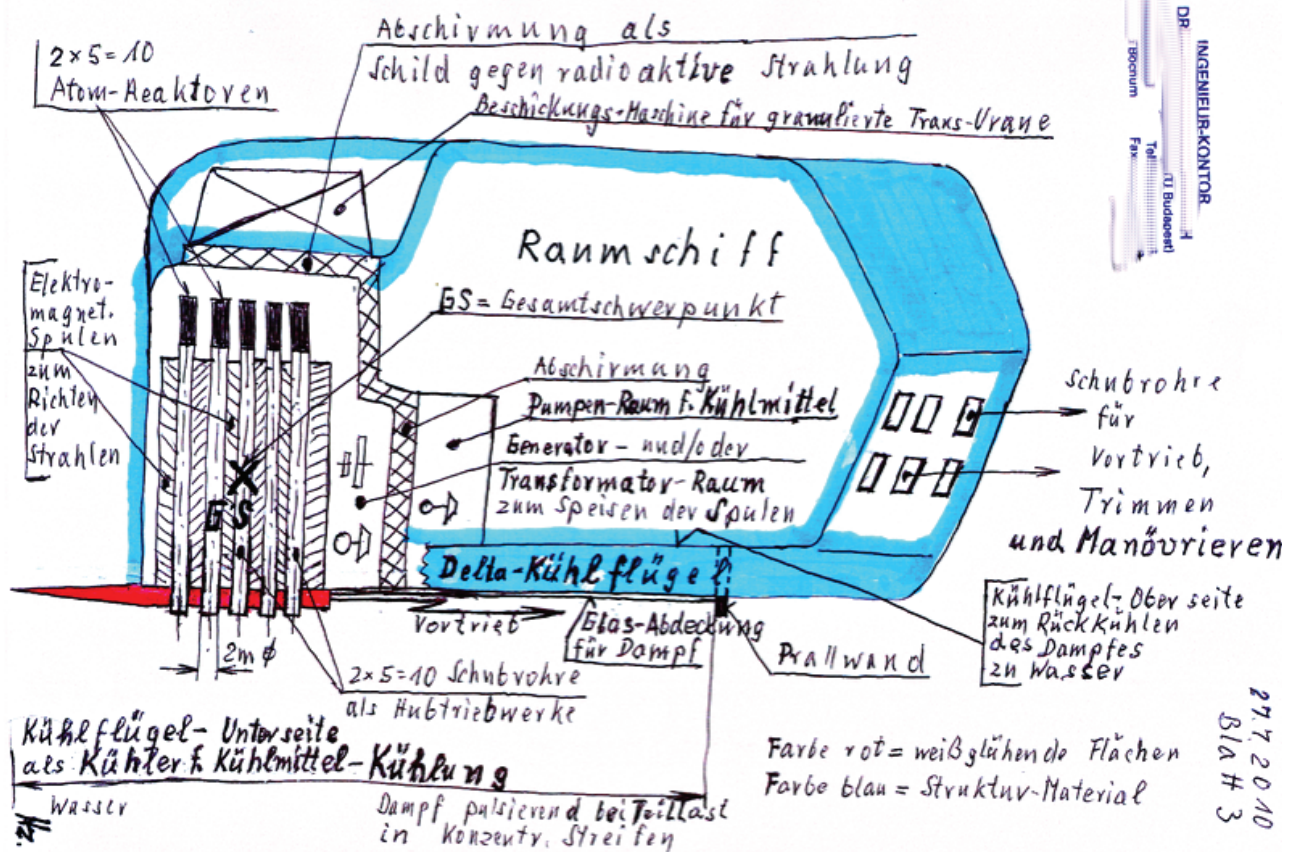 2 × 5 = 10
Atom-Reaktoren
Abschirmung als
Schild gegen radioaktive Strahlung
Beschickungs-Maschine für granulierte Trans-Urane
DR.
INGENIEUR-KONTOR
TU Budapest)
Bochum
Tel
Fax
Raumschiff
GS = Gesamtschwerpunkt
Elektro-
magnet.
Spulen
zum
Richten
der
Strahlen
Abschirmung
Pumpen-Raum f. Kühlmittel
Generator- und/oder
Transformator-Raum
zum Speisen der Spulen
GS
Schubrohre
für
Vortrieb,
Trimmen
und Manövrieren
Delta-Kühlflügel
Vortrieb
Glas-Abdeckung
für Dampf
Prallwand
Kühlflügel-Oberseite
zum Rückkühlen
des Dampfes
zu Wasser
2m ϕ
2×5=10 Schubrohre
als Hubtriebwerke
Kühlflügel-Unterseite
als Kühler f. Kühlmittel-Kühlung
Wasser
Dampf pulsierend bei Teillast
in Konzentr. Streifen
Farbe rot = weißglühende Flächen
Farbe blau = Struktur-Material
27.7.2010
Blatt 3